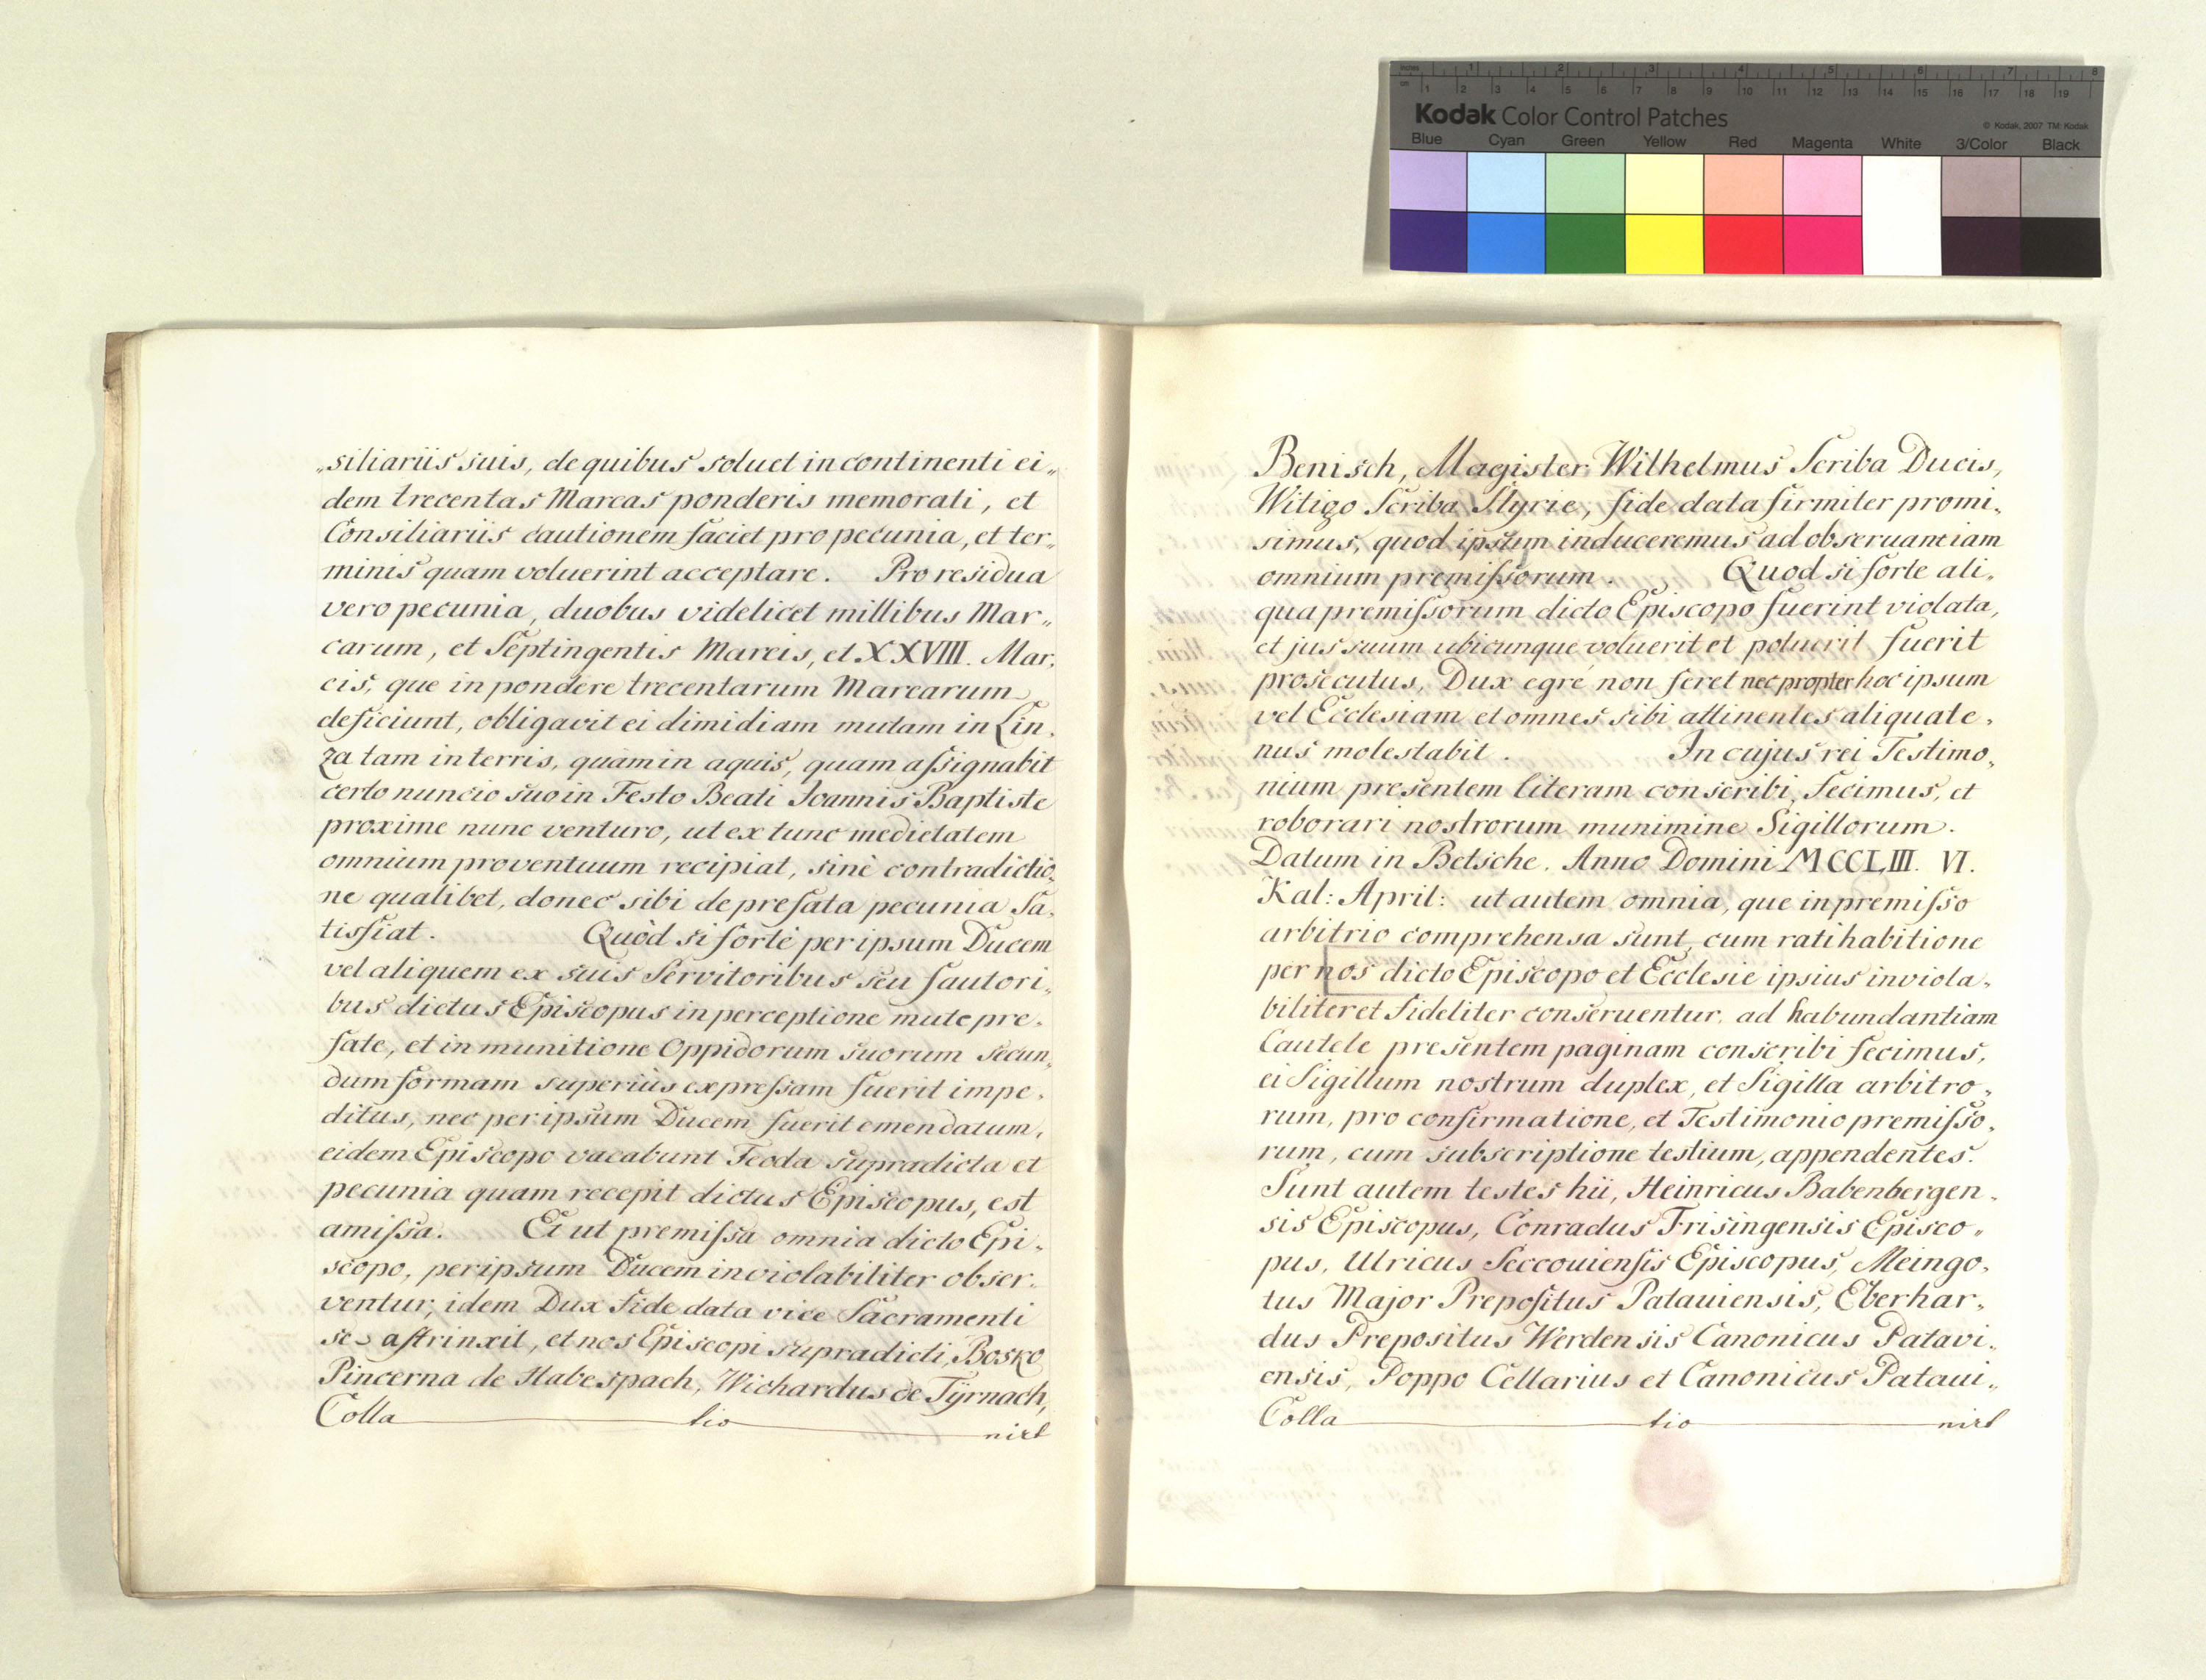 „siliariis suis, de quibus soluet incontinenti ei„
dem trecentas Marcas ponderis memorati, et
Consiliariis cautionem faciet pro pecunia, et ter„
minis quam voluerint acceptare. Pro residua
vero pecunia, duobus videlicet millibus Mar„
carum, et Septingentis Marcis, et XXVIII. Mar„
cis, que in pondere trecentarum Marcarum
deficiunt, obligavit ei dimidiam mutam in Lin„
za tam in terris, quam in aquis, quam assignabit
certo nuncio suo in Festo Beati Joannis Baptiste
proxime nunc venturo, ut ex tunc medietatem
omnium proventuum recipiat, sinè contradictio„
ne qualibet, donec sibi de prefata pecunia sa„
tisfiat. Quòd si fortè per ipsum Ducem
vel aliquem ex suis Servitoribus seu fautori„
bus dictus Episcopus in perceptione mute pre„
fate, et in munitione Oppidorum suorum secun„
dum formam superiùs expressam fuerit impe„
ditus, nec per ipsum Ducem fuerit emendatum,
eidem Episcopo vacabunt Feoda supradicta et
pecunia quam recepit dictus Episcopus, est
amissa. Et ut premissa omnia dicto Epi„
scopo, per ipsum Ducem inviolabiliter obser„
ventur, idem Dux fide data vice Sacramenti
se astrinxit, et nos Episcopi supradicti, Bosko
Pincerna de Habespach, Wichardus de Tÿrnach,
Colla tio nirt
Benisch, Magister Wilhelmus Scriba Ducis,
Witigo Scriba Styrie, fide data firmiter promi„
simus, quod ipsum induceremus ad obseruantiam
omnium premissorum. Quod si forte ali„
qua premissorum dicto Episcopo fuerint violata,
et jus suum ubicunque voluerit et potuerit fuerit
prosecutus, Dux egrè non feret nec propter hoc ipsum
vel Ecclesiam et omnes sibi attinentes aliquate„
nus molestabit. In cujus rei Testimo„
nium presentem literam conscribi fecimus, et
roborari nostrorum munimine Sigillorum.
Datum in Betsche. Anno Domini MCCLIII. VI.
Kal: April: ut autem omnia, que in premisso
arbitrio comprehensa sunt, cum ratihabitione
per nos dicto Episcopo et Ecclesie ipsius inviola„
biliter et fideliter conseruentur, ad habundantiam
Cautele presentem paginam conscribi fecimus,
ei Sigillum nostrum duplex, et Sigilla arbitro„
rum, pro confirmatione, et Testimonio premisso„
rum, cum subscriptione testium, appendentes.
Sunt autem testes hii, Heinricus Babenbergen„
sis Episcopus, Conradus Frisingensis Episco„
pus, Ulricus Seccouiensis Episcopus, Meingo„
tus Major Prepositus Patauiensis, Eberhar„
dus Prepositus Werdensis Canonicus Patavi„
ensis, Poppo Cellarius et Canonicus Pataui„
Colla tio nirt
inches 1 2 3 4 5 6 7 8
cm 1 2 3 4 5 6 7 8 9 10 11 12 13 14 15 16 17 18 19
Kodak Color Control Patches
© Kodak, 2007 TM: Kodak
Blue Cyan Green Yellow Red Magenta White 3/Color Black